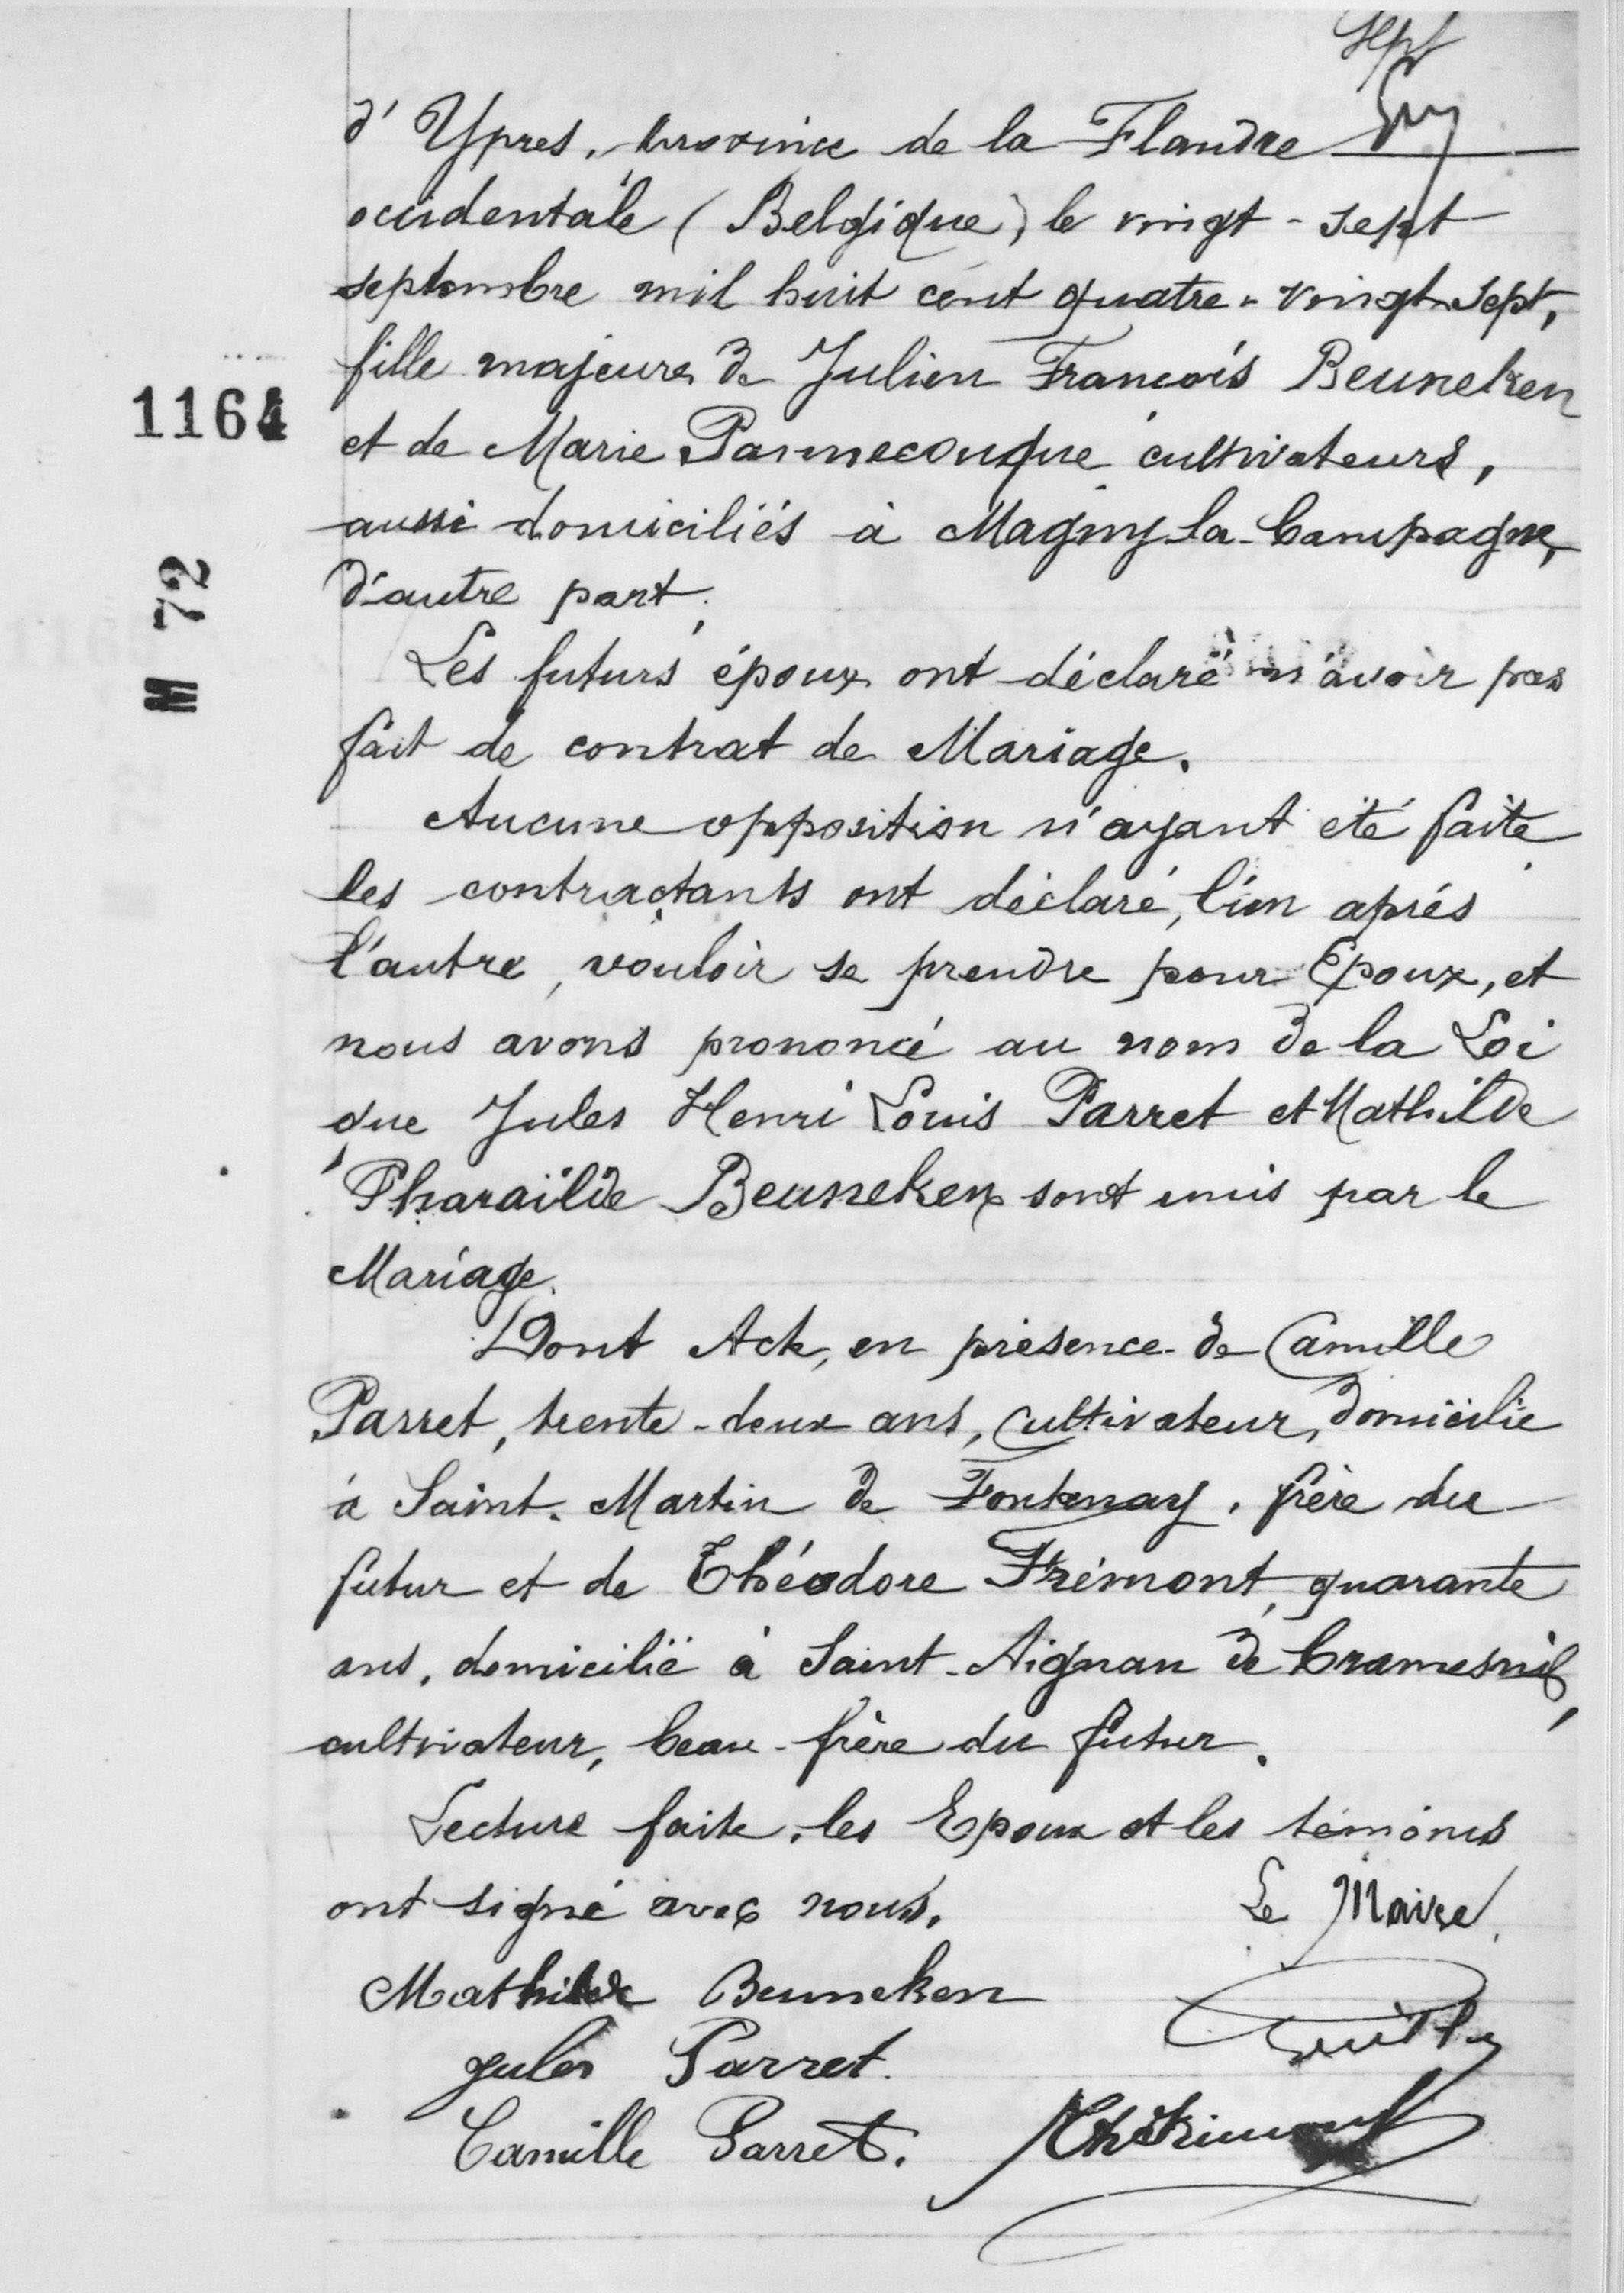 Sept
d'Ypres, province de la Flandre
occidentale (Belgique) le vingt-sept
septembre mil huit cent quatre-vingt sept,
fille majeure de Julien François Beuneken
1164
et de Marie Pannecouque cultivateurs,
aussi domiciliés à Magny-la-Campagne,
M 72
d'autre part.
Les futurs époux ont déclaré n'avoir pas
fait de contrat de Mariage.
Aucune opposition n'ayant été faite
les contractants ont déclaré, l'un après
l'autre, vouloir se prendre pour Epoux, et
nous avons prononcé au nom de la Loi
que Jules Henri Louis Parret et Mathilde
Pharaïlde Beuneken sont unis par le
Mariage.
Dont Acte, en présence de Camille
Parret, trente-deux ans, cultivateur, domicilié
à Saint-Martin de Fontenay, frère du
futur et de Théodore Frémont, quarante
ans, domicilié à Saint-Aignan de Cramesnil,
cultivateur, beau-frère du futur.
Lecture faite, les Epoux et les témoins
ont signé avec nous. Le Maire,
Mathilde Beuneken
Jules Parret.
Camille Parret.